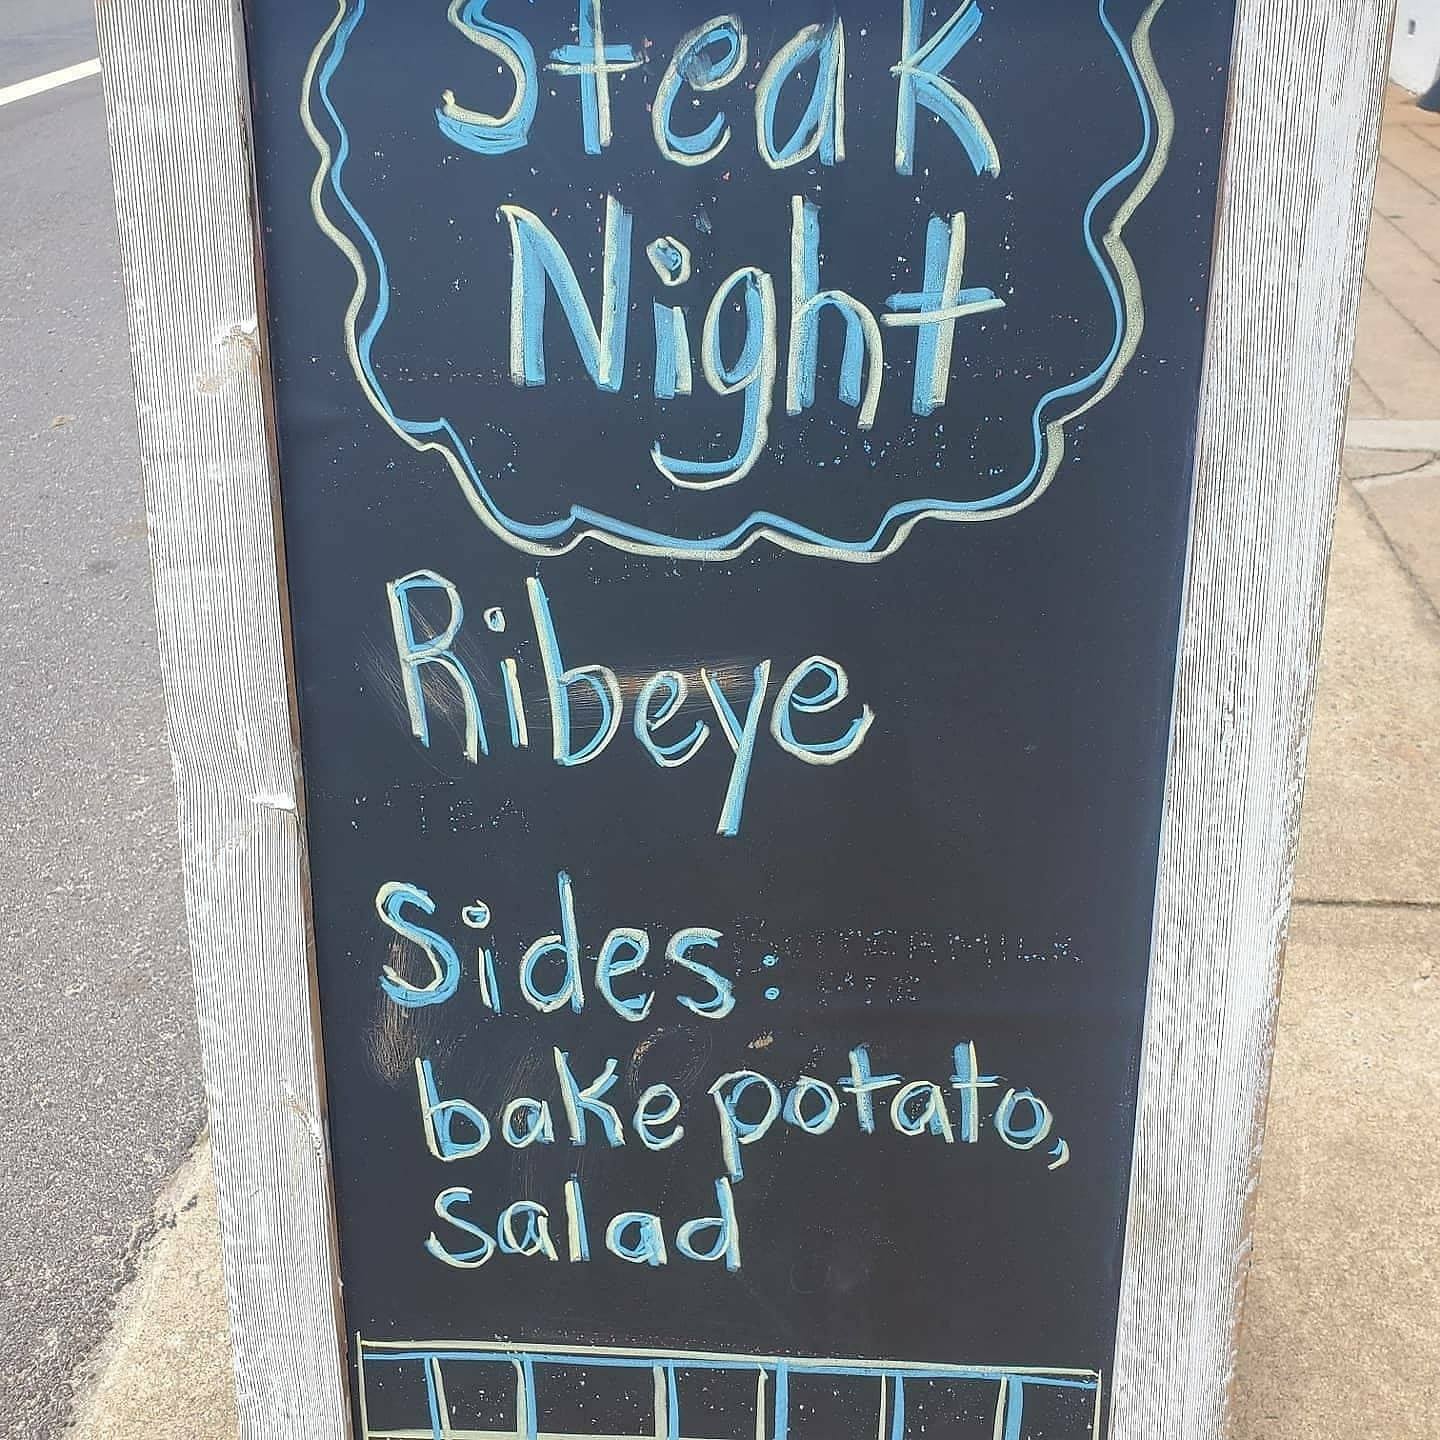 Steak
Night
Ribeye
Sides:
bake potato,
salad